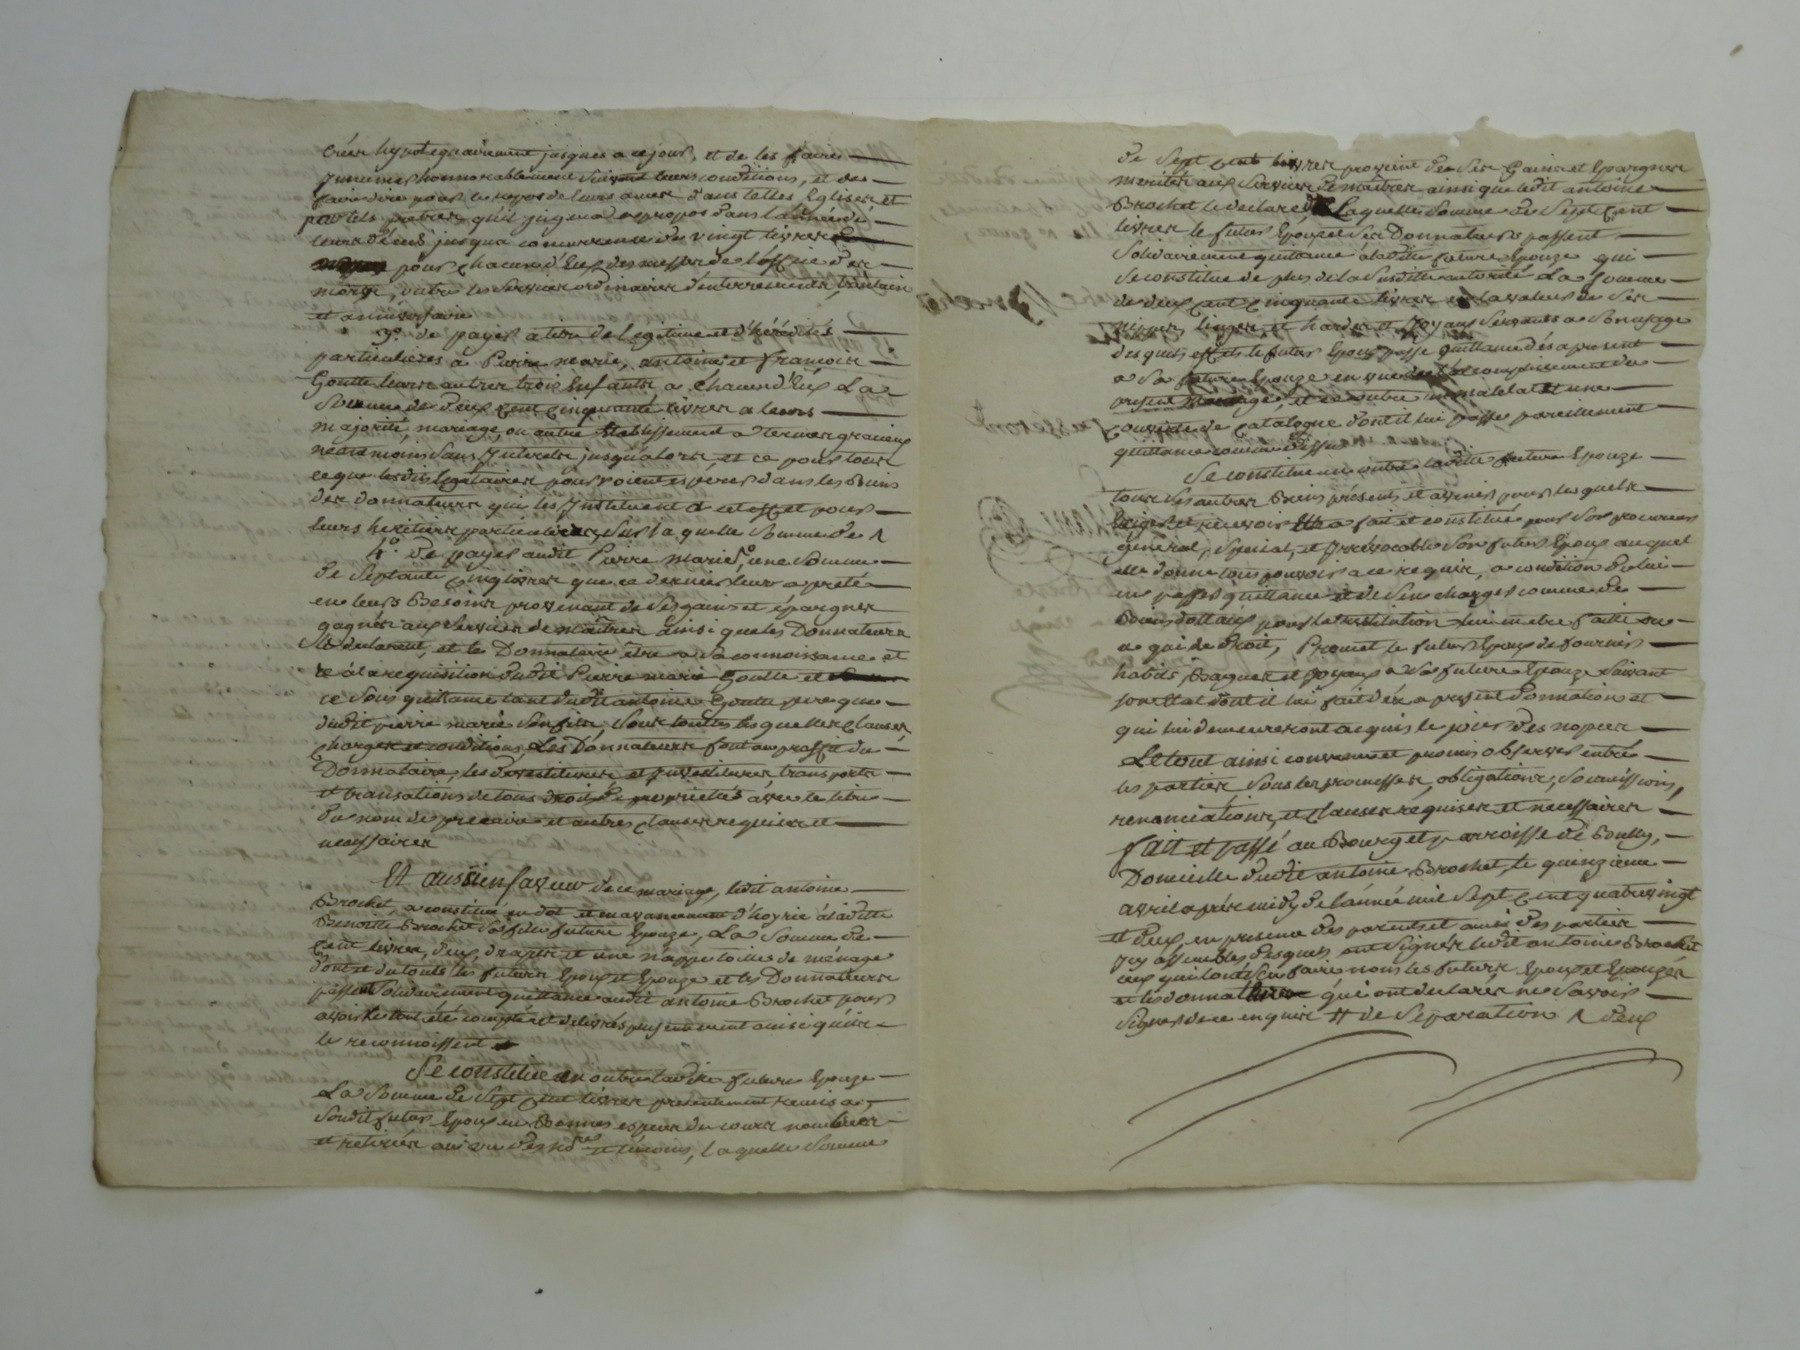 créer hypotequairement jusques a ce jour, et de les faire
Inhumer honnorablement Suivant leurs conditions, et de
faire dire pour le repos de leurs ames dans telles Eglises et
par tels pretres qu'il jugera a propos dans l'année de
leurs décès jusqu'a concurrence de vingt livres
pour chacun d'Eux des messes de l'office des
morts, outre les services ordinaires d'enterrements, trentain
et anniversaire
3°. de payer a titre de legitime et d'hérédités
particulieres à Pierre marie, antoine, et francois
Goutte leurs autres trois Enfants, a chacun d'Eux La
Somme de deux cent cinquante livres a leurs
majorité, mariage, ou autre Etablissement a termes gracieux
néanmoins sans Interets jusqu'alors, et ce pour tout
ce que lesdits légataires pourroient esperer dans les Biens
des donnateurs qui les Instituent a cet effet pour
leurs heritiers particuliers, Sur laquelle Somme de
4°. de payer audit Pierre marie, une Somme
de Septante cinq livres que ce dernier leur a preté
en leurs Besoins provenant de Ses gains et épargnes
gagnés aux services de maîtres ainsi que les Donnateurs
Le declarent, et le Donnataire être a Sa connoissance et
ce à la requisition dudit Pierre marie Goutte et
ce Sous quittance tant dudit antoine Goutte pere que
dudit pierre marie Son fils, Sous toutes lesquelles clauses
charges et conditions, Les Donnateurs font au proffit du
Donnataire, les devestitures et Investitures, transports
et translations de tous droits de propriétés avec le titre
du nom de precaire et autres clauses requises et
necessaires
Et aussi en faveur de ce mariage, ledit antoine
Brochet a constitué en dot et en avancement d'hoyrie à ladite
Benoitte Brochet Sa fille future Epouze, La Somme de
cent livres, deux draps et une nappe toille de ménage
dont et du tout les futurs Epoux et Epouze et les Donnateurs
passent Solidairement quittance audit antoine Brochet pour
avoir le tout été compté et delivré présentement ainsi qu'ils
le reconnoissent
Se constitue en outre ladite future Epouze
La Somme de Sept cent livres presentement remis a
Sondit futur Epoux en Bonnes especes du cours nombrées
et retirées au vu des no.res et témoins, laquelle Somme
de Sept cent livres provient de Ses Gains et Epargnes
merités aux Services de maîtres ainsi que ledit antoine
Brochet le declare Laquelle Somme de Sept cent
livres le futur Epoux et Ses Donnateurs passent
Solidairement quittance à ladite future Epouze qui
Se constitue de plus de la Susdite autorité La Somme
de deux cent cinquante livres en la valeur de Ses
nippes, linges, et hardes et Joyaux Servants a Son usage
desquels effets le futur Epoux passe quittance dès a present
a Sa future Epouze en vue de l'accomplissement du
present mariage, et en outre un matelat et une
couverte de Catalogne dont il lui passe pareillement
quittance comme dessus
Se constitue en outre ladite future Epouze
tous Ses autres Biens présents et avenirs pour lesquels
Exiger et recevoir Elle a fait et constitué pour Son procureur
général, Special, et Irrévocable Son futur Epoux auquel
elle donne tous pouvoirs a ce requis, a condition de lui
en passer quittance et de S'en charger comme de
Biens dottaux pour la restitution lui en etre faite ou
a qui de droit, Promet le futur Epoux de fournir
habits, Bagues et Joyaux a Sa future Epouze Suivant
Son Etat dont il lui fait dès a present donnation et
qui lui demeureront acquis le jour des nopces
Le tout ainsi convenu et promis observer entre
les parties Sous les promesses, obligations, Soumissions,
renonciations, et clauses requises et necessaires
fait et passé au Bourg et parroisse de Bully,
Domicille dudit antoine Brochet, le quinzieme
avril après midy de l'année mil Sept cent quatre vingt
et deux, en presence des parents et amis des parties
Icy assemblés desquels ont Signés ledit antoine Brochet
ceux qui l'ont Sçu faire non les futurs Epoux et Epouzes
et les donnateurs qui ont declarés ne Savoir
Signer de ce enquis # de Separation ^ deux